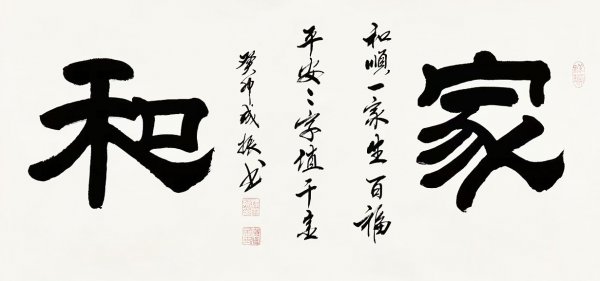 家
和順一家生百福
平安二字值千金
和
癸卯成振書